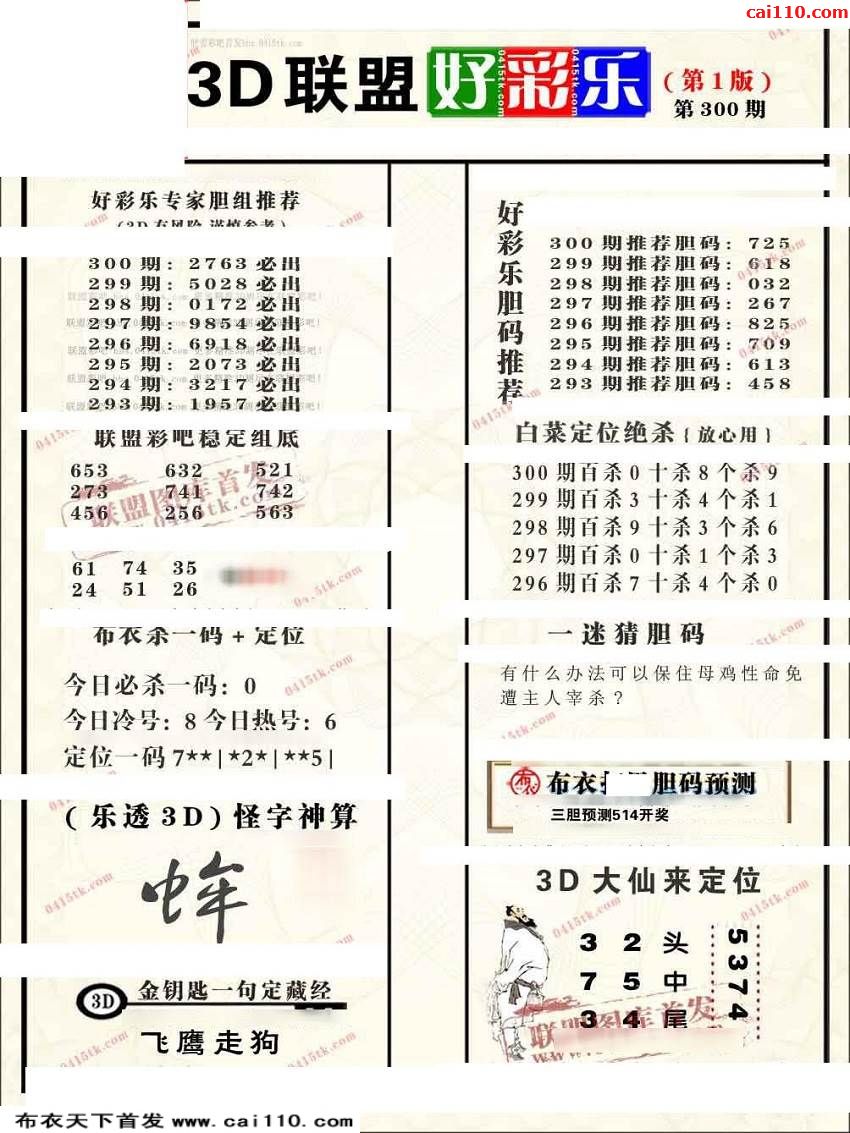 cai110.com
3D联盟好彩乐(第1版)
第300期
好彩乐专家胆组推荐
300期: 2763必出
299期: 5028必出
298期: 0172必出
297期: 9854必出
296期: 6918必出
295期: 2073必出
294期: 3217必出
293期: 1957必出
联盟彩吧稳定组底
653 632 521
273 741 742
456 256 563
61 74 35
24 51 26
布衣杀一码+定位
今日必杀一码: 0
今日冷号: 8 今日热号: 6
定位一码 7**|*2*|**5|
(乐透3D)怪字神算
3D 金钥匙一句定藏经
飞鹰走狗
好彩乐胆码推荐
300期推荐胆码: 725
299期推荐胆码: 618
298期推荐胆码: 032
297期推荐胆码: 267
296期推荐胆码: 825
295期推荐胆码: 709
294期推荐胆码: 613
293期推荐胆码: 458
白菜定位绝杀{放心用}
300期百杀0十杀8个杀9
299期百杀3十杀4个杀1
298期百杀9十杀3个杀6
297期百杀0十杀1个杀3
296期百杀7十杀4个杀0
一迷猜胆码
有什么办法可以保住母鸡性命免
遭主人宰杀?
布衣 胆码预测
三胆预测514开奖
3D大仙来定位
3 2 头
7 5 中
3 4 尾
5374
联盟图库首发
0415tk.com
布衣天下首发 www.cai110.com